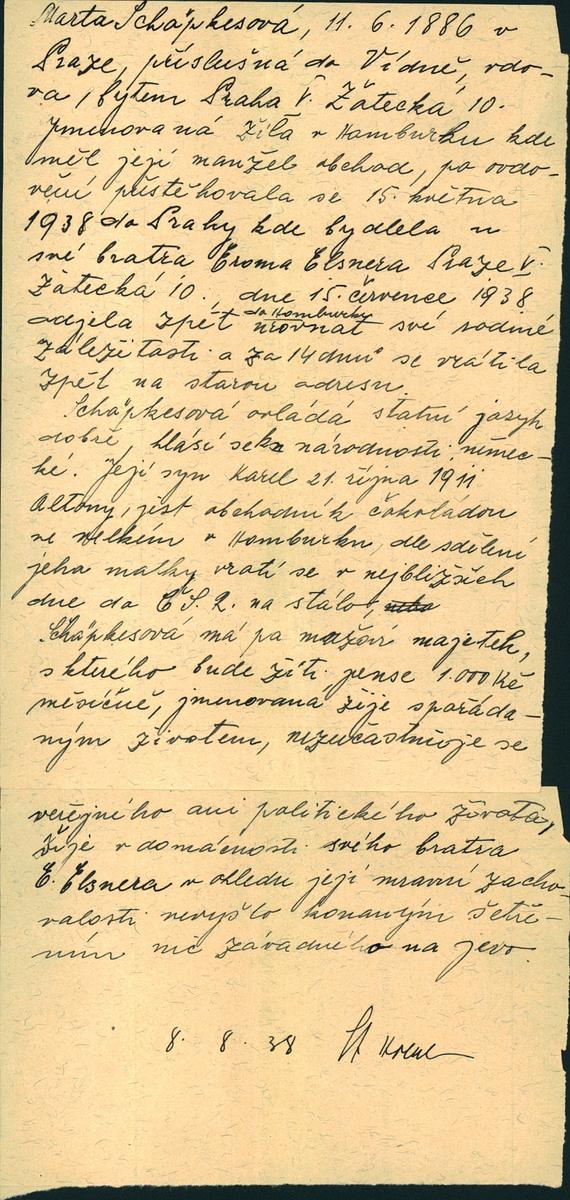 Marta Schäpkesová, 11. 6. 1886 v
Praze, příslušná do Vídně, vdo-
va, bytem Praha V. Žátecká 10.
Jmenovaná žila v Hamburku kde
měl její manžel obchod, po ovdo-
vění přistěhovala se 15. května
1938 do Prahy kde bydlela u
své bratra Eroma Elsnera Praze V.
Žátecká 10., dne 15. července 1938
do Hamburku
odjela zpět urovnat své rodiné
záležitosti a za 14 dnů se vrátila
zpět na starou adresu.
Schäpkesová ovládá statní jazyk
dobře, hlásí se k národnosti němec-
ké. Její syn Karel 21. října 1911
Altony, jest obchodník čokoládou
ve velkém v Hamburku, dle sdělení
jeho matky vrátí se v nejbližších
dne do Č.S.R. na stálo,
Schäpkesová má po mužovi majetek,
s kterého bude žíti pense 1.000 Kč
měsíčně, jmenovaná žije spořáda-
ným životem, nezučastnivje se
veřejného ani politického života,
žije v domácnosti svého bratra
E. Elsnera v ohledu její mravní zacho-
valosti nevyšlo konaným šetře-
ním nic závadného na jevo.
8. 8. 38